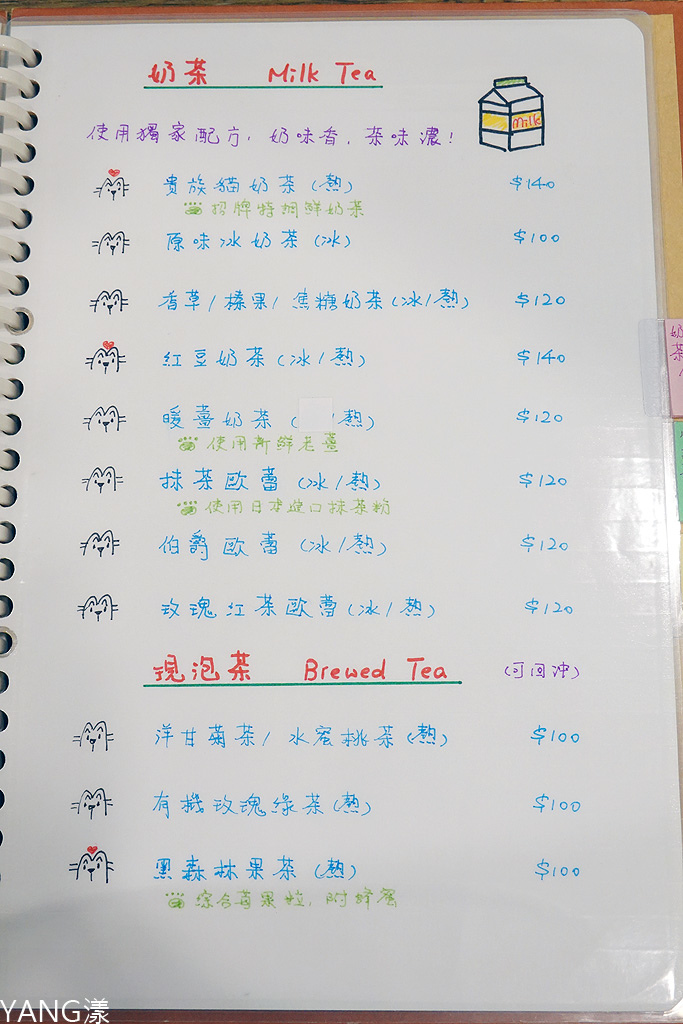 奶茶 Milk Tea
Milk
使用獨家配方,奶味香,茶味濃!
貴族貓奶茶(熱) $140
招牌特調鮮奶茶
原味冰奶茶(冰) $100
香草/榛果/焦糖奶茶(冰/熱) $120
紅豆奶茶(冰/熱) $140
暖薑奶茶(/熱) $120
使用新鮮老薑
抹茶歐蕾(冰/熱) $120
使用日本進口抹茶粉
伯爵歐蕾(冰/熱) $120
玫瑰紅茶歐蕾(冰/熱) $120
現泡茶 Brewed Tea (可回沖)
洋甘菊茶/水蜜桃茶(熱) $100
有機玫瑰綠茶(熱) $100
黑森林果茶(熱) $100
綜合莓果粒,附蜂蜜
奶茶
YANG漾